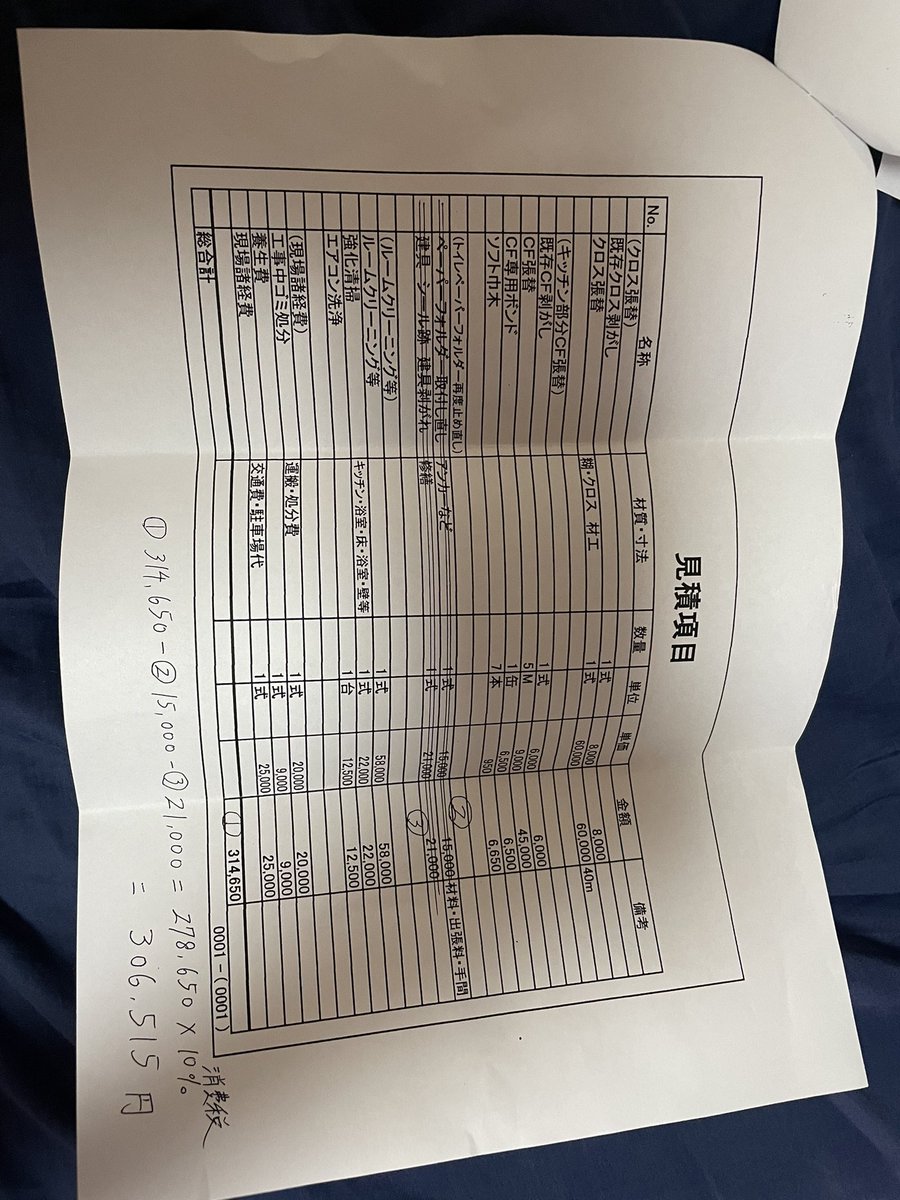 見積項目
No. 名称 材質・寸法 数量 単位 単価 金額 備考
(クロス張替)
既存クロス剥がし 1 式 8,000 8,000
クロス張替 糊・クロス 材工 1 式 60,000 60,000 40m
(キッチン部分CF張替)
既存CF剥がし 1 式 6,000 6,000
CF張替 5 M 9,000 45,000
CF専用ボンド 1 缶 6,500 6,500
ソフト巾木 7 本 950 6,650
(トイレペーパーフォルダー再度止め直し)
ペーパーフォルダー 取付し直し アンカーなど 1 式 15,000 ② 15,000 材料・出張料・手間
建具 シール跡 建具剥がれ 修繕 1 式 21,000 ③ 21,000
(ルームクリーニング等)
ルームクリーニング等 1 式 58,000 58,000
強化清掃 キッチン・浴室・床・浴室・壁等 1 式 22,000 22,000
エアコン洗浄 1 台 12,500 12,500
(現場諸経費)
工事中ゴミ処分 運搬・処分費 1 式 20,000 20,000
養生費 1 式 9,000 9,000
現場諸経費 交通費・駐車場代 1 式 25,000 25,000
総合計 ① 314,650
0001-(0001)
消費税
① 314,650-②15,000-③21,000= 278,650×10%
= 306,515円